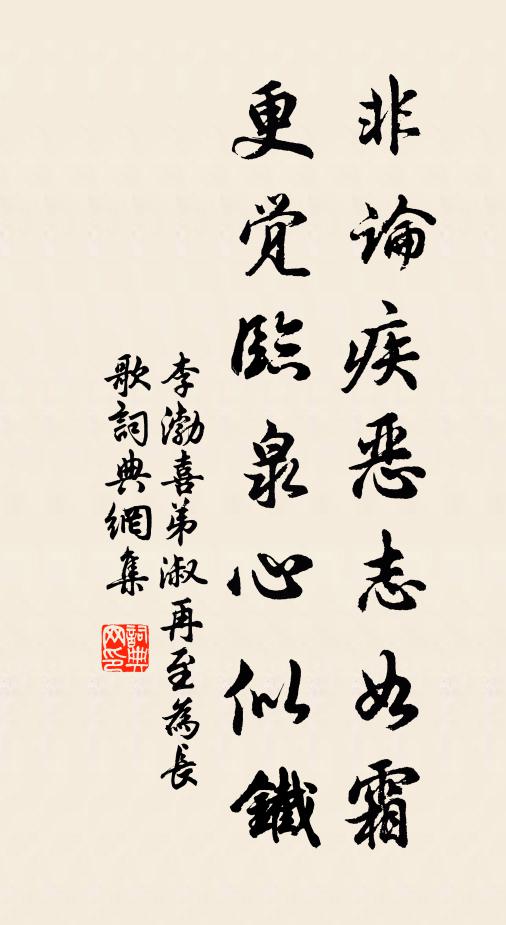 非论疾恶志如霜
更觉临泉心似鐵
李渤喜弟淑再至為長
歌詞典網集
詞典
网印